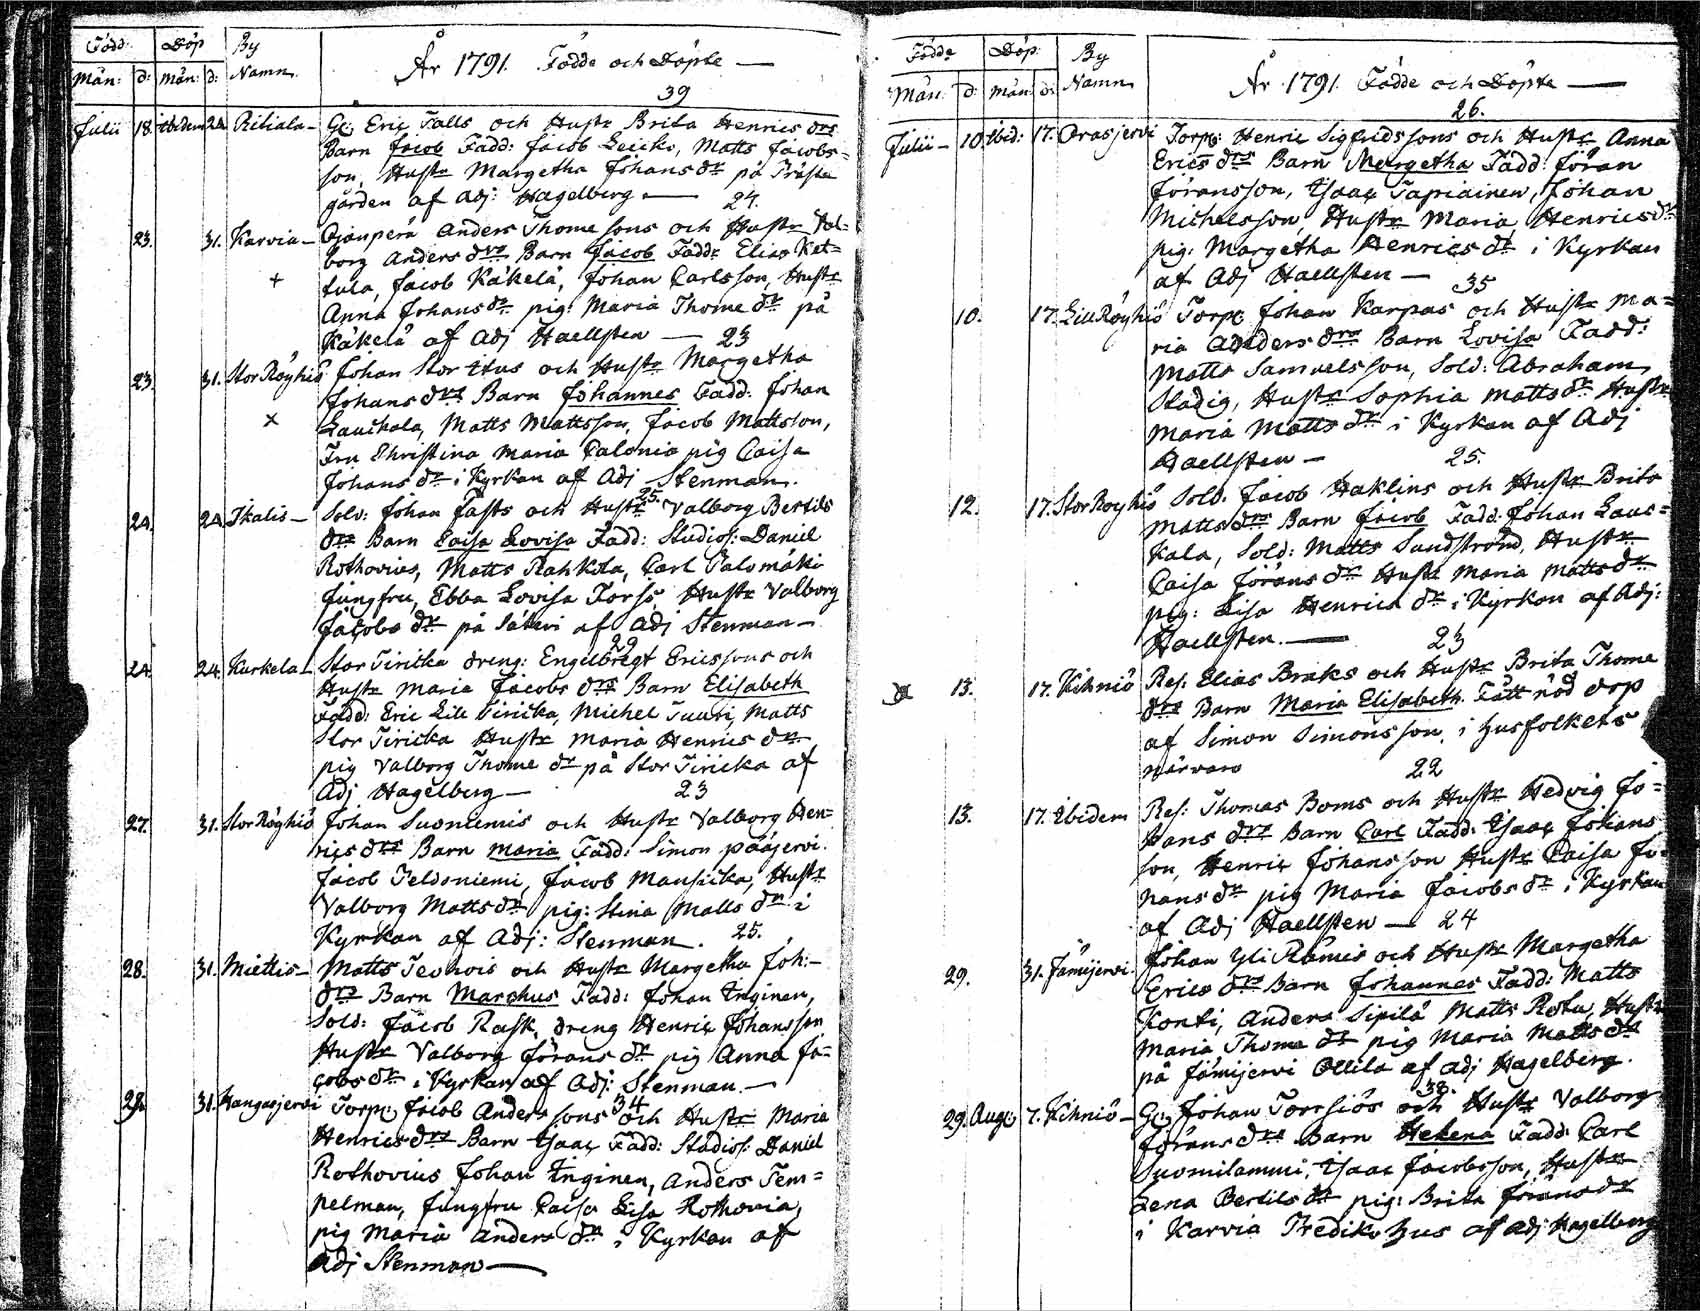 Född: Döp By År 1791. Födde och Döpte —
Mån: d: Mån: d: Namn.
39
Julii 18. ibidem 24 Ritiala — Gg: Eric Falls och Hustr Brita Henrics drs
Barn Jacob Fadd: Jacob Leicko, Matts Jacobs=
son, Hustr Margetha Johans dr på Präste
gården af Adj: Hagelberg — 24.
23. 31. Karvia — Ojanperä Anders Thome sons och Hustr Val=
borg Anders drs Barn Jacob Fadd: Elias Ket=
+ tula, Jacob Käkelä, Johan Carlsson, Hustr
Anna Johans dr pig: Maria Thome dr på
Käkelä af Adj Haellsten — 23
23. 31. Stor Röyhiö Johan Stor Itus och Hustr Margetha
Johans drs Barn Johannes Fadd: Johan
x Lauckala, Matts Mattsson, Jacob Mattsson,
Fru Christina Maria Calonia pig Caisa
Johans dr i Kyrkan af Adj Stenman.
25.
24. 24 Ikalis — Sold: Johan Fasts och Hustr Valborg Bertils
drs Barn Caisa Lovisa Fadd: Studios: Daniel
Rothovius, Matts Rahkola, Carl Palomäki
Jungfru, Ebba Lovisa Forss, Hustr Valborg
Jacobs dr på Säteri af Adj Stenman —
29
24. 24. Kurkela — Stor Tiricka dreng: Engelbregt Ericssons och
Hustr Maria Jacobs drs Barn Elisabeth
Fadd: Eric Lill Tiricka, Michel Tuuri, Matts
Stor Tiricka Hustr Maria Henrics dr
pig Valborg Thome dr på Stor Tiricka af
Adj Hagelberg — 23
27. 31. Stor Röyhiö Johan Suoniemis och Hustr Valborg Hen=
rics drs Barn Maria Fadd: Simon Pääjervi.
Jacob Peldoniemi, Jacob Mansicka, Hustr
Valborg Matts dr pig: Stina Matts dr i
Kyrkan af Adj: Stenman. 25.
28. 31. Miettis — Matts Tevois och Hustr Margetha Joh: —
drs Barn Marchus Fadd: Johan Inginen,
Sold: Jacob Rask, dreng Henric Johansson
Hustr Valborg Jörans dr pig Anna Ja=
cobs dr i Kyrkan af Adj: Stenman —
34
29. 31. Kangasjervi Torp: Jacob Anders sons och Hustr Maria
Henrics drs Barn Isaac Fadd: Studios: Daniel
Rothovius Johan Inginen, Anders Tem=
pelman, Jungfru Caisa Lisa Rothovia,
pig Maria Anders dr i Kyrkan af
Adj Stenman —
Födde Döp: By År 1791 Födde och Döpte —
Mån: d: Mån: d: Namn
26.
Julii — 10. ibid: 17. Orasjervi Torp: Henric Sigfridssons och Hustr Anna
Erics drs Barn Margetha Fadd: Jöran
Jöransson, Isaac Tapiainen, Johan
Michelsson, Hustr Maria Henrics dr
pig: Margetha Henrics dr i Kyrkan
af Adj Haellsten — 35
10. 17. Lill Röyhiö Torp: Johan Karpas och Hustr Ma=
ria Anders drs Barn Lovisa Fadd:
Matts Samuelsson, Sold: Abraham
Stadig, Hustr Sophia Matts dr Hustr
Maria Matts dr i Kyrkan af Adj
Haellsten — 25.
12. 17. Stor Royhiö Sold: Jacob Haklins och Hustr Brita
Matts drs Barn Jacob Fadd: Johan Laus=
kala, Sold: Matts Sundström, Hustr
Caisa Jörans dr Hustr Maria Matts dr
pig: Lisa Henrics dr i Kyrkan af Adj:
Haellsten. — 23
13. 17. Kihniö Ref: Elias Braks och Hustr Brita Thome
drs Barn Maria Elisabeth. Fått nöd döp
af Simon Simonsson, i husfolkets
närvaro 22
13. 17. Ibidem Ref: Thomas Boms och Hustr Hedvig Jo=
hans drs Barn Carl Fadd: Isaac Johans
son, Henric Johansson Hustr Caisa Jo=
hans dr pig Maria Jacobs dr i Kyrkan
af Adj Haellsten — 24
29. 31. Jämijervi. Johan Yli Rämis och Hustr Margetha
Erics drs Barn Johannes Fadd: Matts
Konti, Anders Sipilä Matts Rota, Hustr
Maria Thome dr pig Maria Matts dr
på Jämijervi Ollila af adj Hagelberg.
38.
29. Aug: 7. Kihniö — Gg: Johan Torrsiös och Hustr Valborg
Jörans drs Barn Helena Fadd: Carl
Suomilammi, Isaac Jacobsson, Hustr
Lena Bertils dr pig: Brita Jörans dr
i Karvia Prediko hus af adj Hagelberg